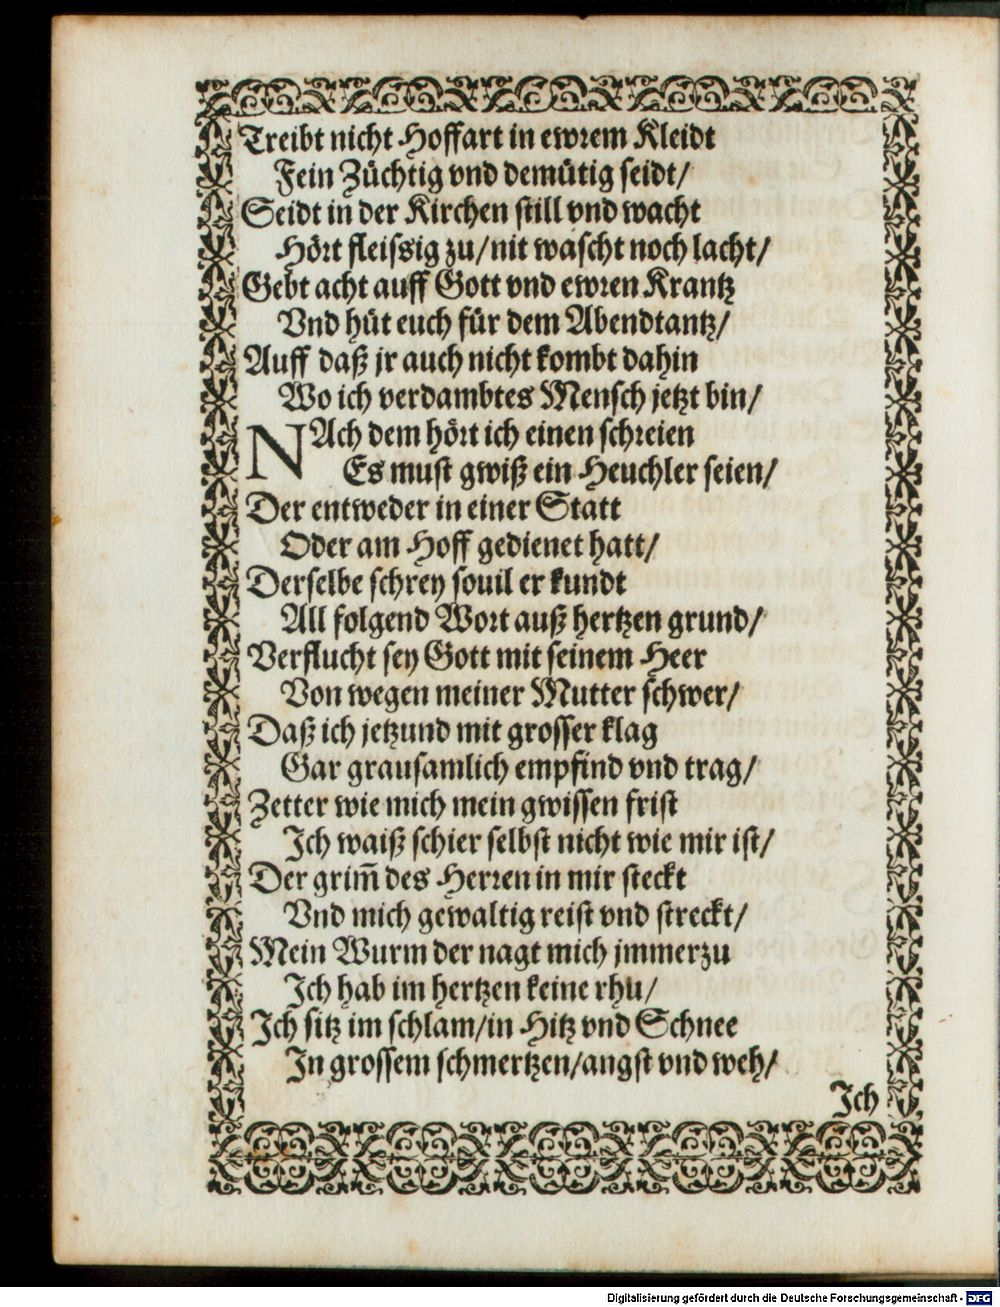 Treibt nicht Hoffart in ewrem Kleidt
Fein Züchtig vnd demütig seidt/
Seidt in der Kirchen still vnd wacht
Hört fleissig zu/nit wascht noch lacht/
Gebt acht auff Gott vnd ewren Krantz
Vnd hüt euch für dem Abendtantz/
Auff daß jr auch nicht kombt dahin
Wo ich verdambtes Mensch jetzt bin/
NAch dem hört ich einen schreien
Es must gwiß ein Heuchler seien/
Der entweder in einer Statt
Oder am Hoff gedienet hatt/
Derselbe schrey souil er kundt
All folgend Wort auß hertzen grund/
Verflucht sey Gott mit seinem Heer
Von wegen meiner Mutter schwer/
Daß ich jetzund mit grosser klag
Gar grausamlich empfind vnd trag/
Zetter wie mich mein gwissen frist
Ich waiß schier selbst nicht wie mir ist/
Der grim̃ des Herren in mir steckt
Vnd mich gewaltig reist vnd streckt/
Mein Wurm der nagt mich jmmerzu
Ich hab im hertzen keine rhu/
Ich sitz im schlam/in Hitz vnd Schnee
In grossem schmertzen/angst vnd weh/
Ich
Digitalisierung gefördert durch die Deutsche Forschungsgemeinschaft - DFG